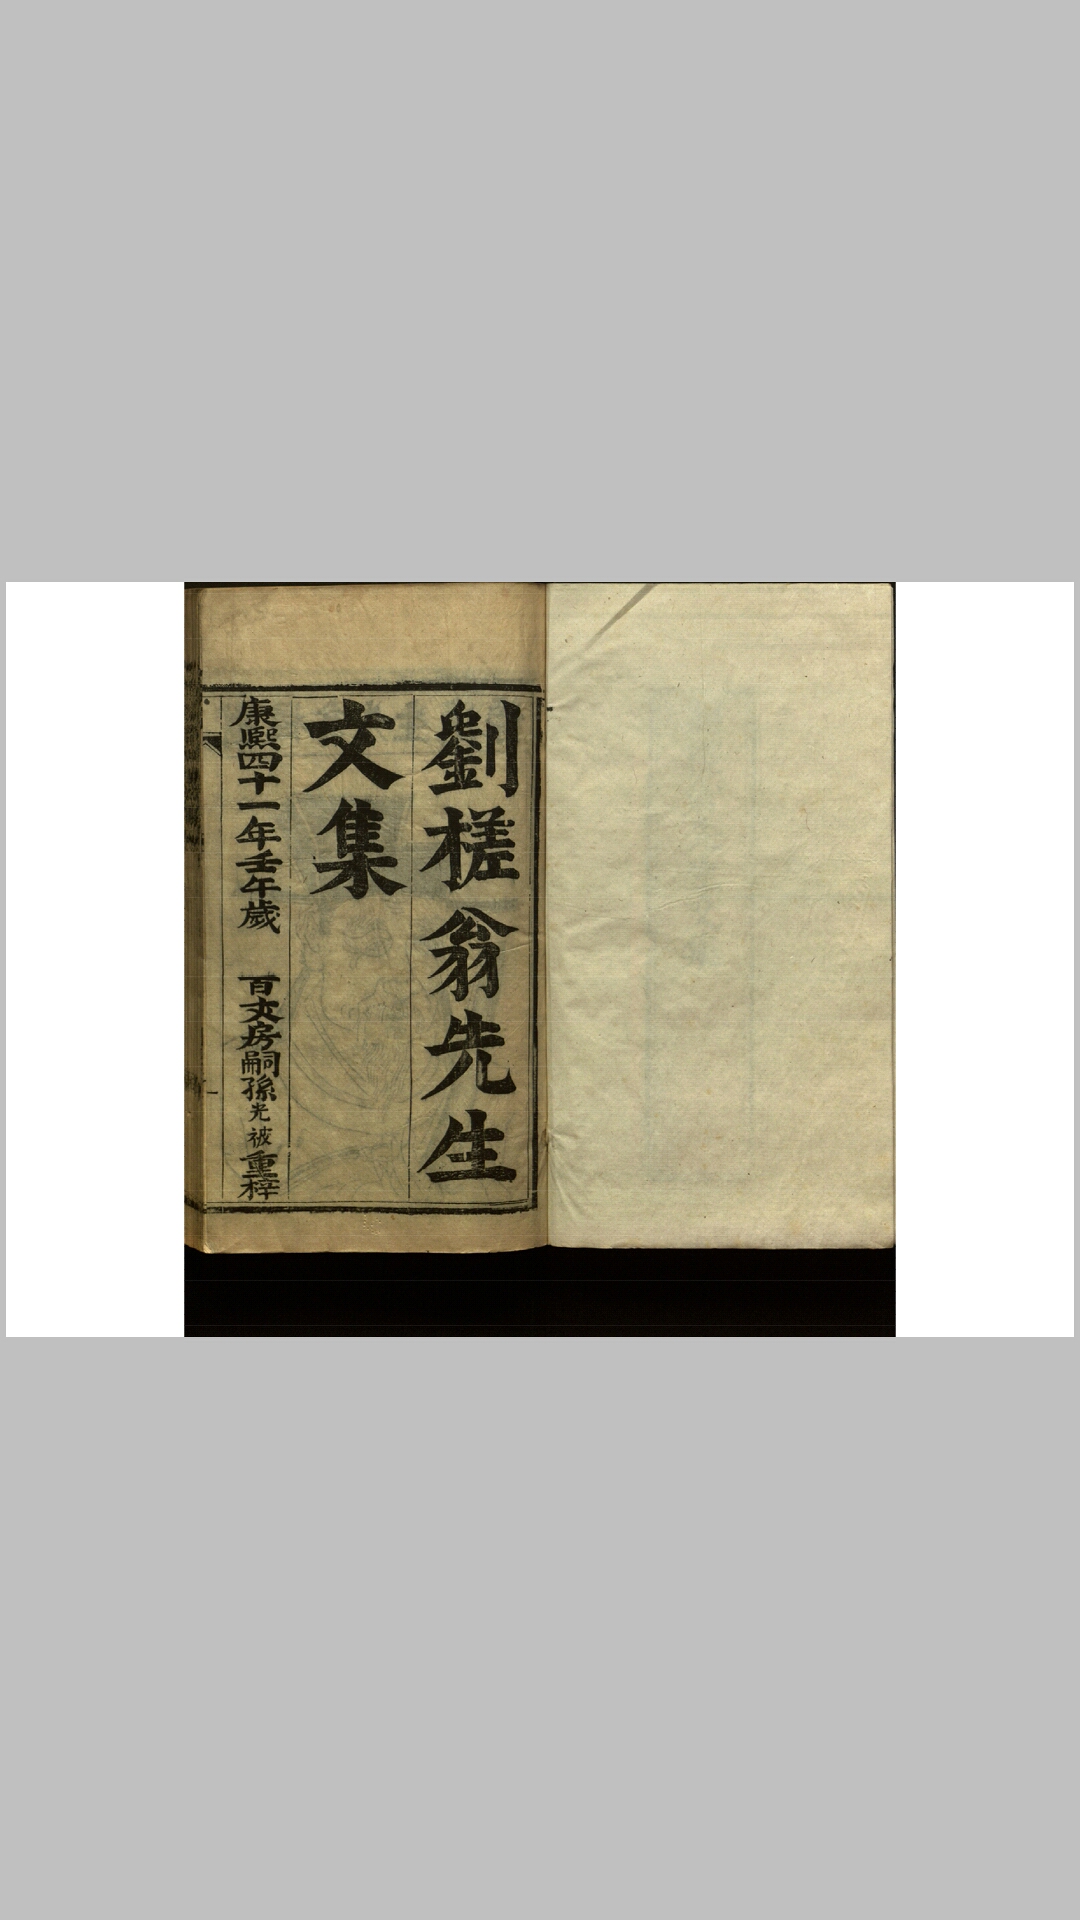 劉槎翁先生
文集
康熙四十一年壬午歲 百丈房嗣孫光被重梓